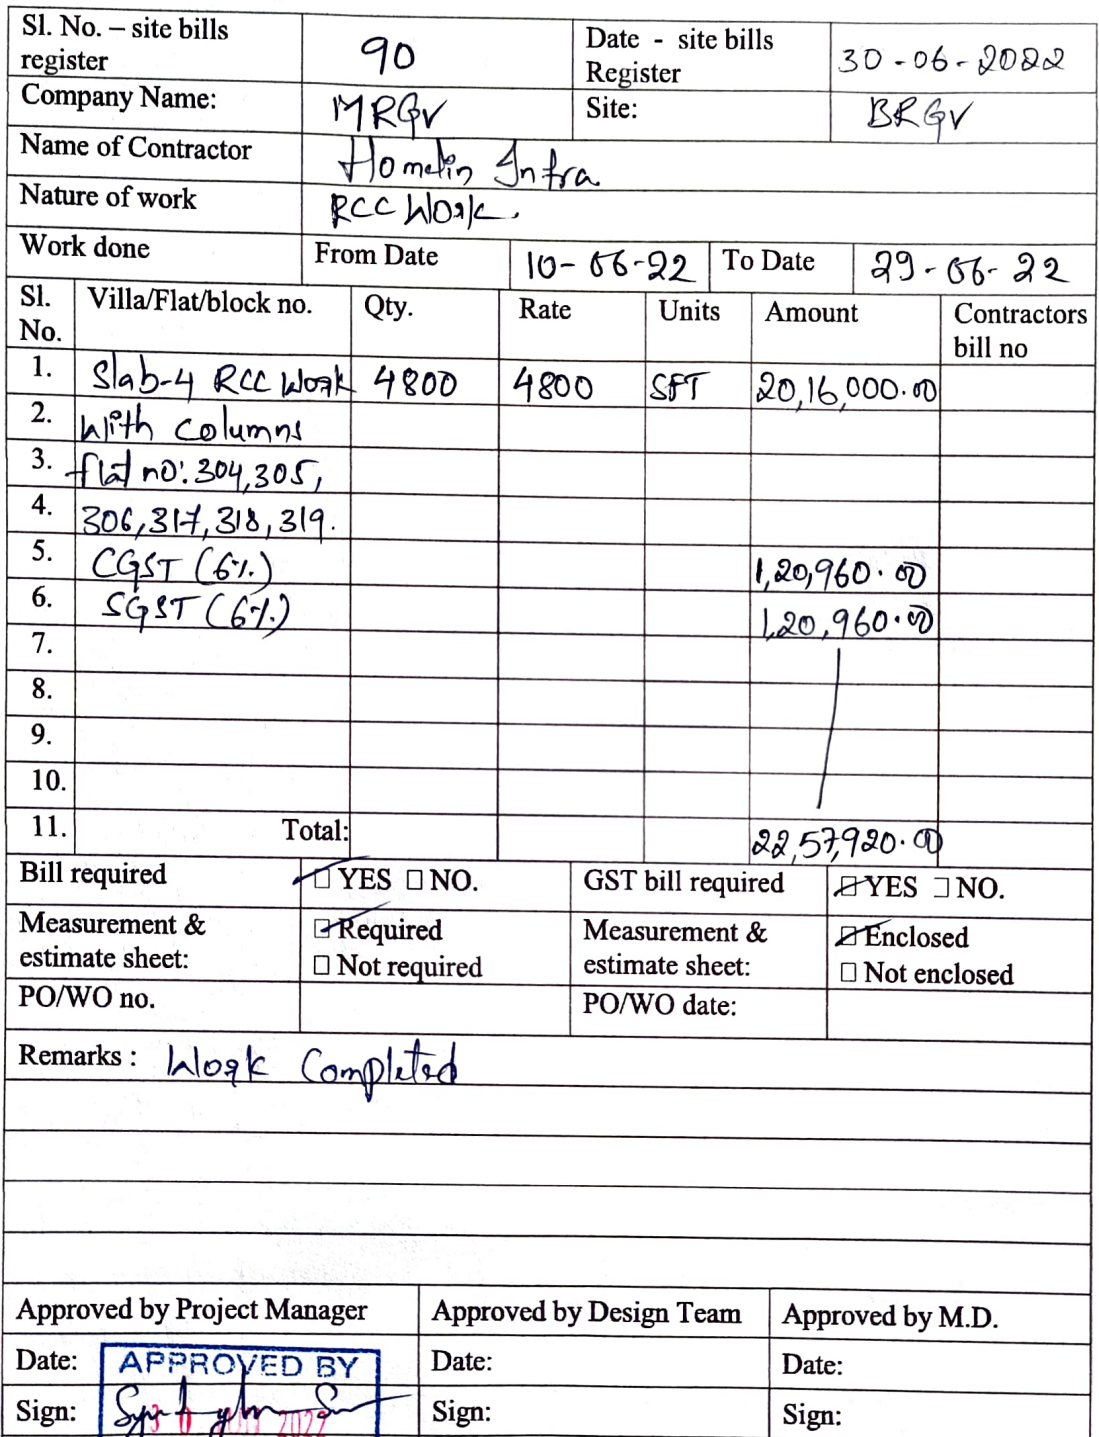 Sl. No. – site bills register 90 Date - site bills Register 30-06-2022
Company Name: MRGV Site: BRGV
Name of Contractor Homelin Infra
Nature of work RCC Work.
Work done From Date 10-06-22 To Date 29-06-22
Sl. No. Villa/Flat/block no. Qty. Rate Units Amount Contractors bill no
1. Slab-4 RCC Work 4800 4800 SFT 20,16,000.00
2. With columns
3. flat no: 304,305,
4. 306,317,318,319.
5. CGST (6%) 1,20,960.00
6. SGST (6%) 1,20,960.00
7.
8.
9.
10.
11. Total: 22,57,920.00
Bill required ☑ YES ☐ NO. GST bill required ☑ YES ☐ NO.
Measurement & estimate sheet: ☑ Required ☐ Not required Measurement & estimate sheet: ☑ Enclosed ☐ Not enclosed
PO/WO no. PO/WO date:
Remarks : Work Completed
Approved by Project Manager Approved by Design Team Approved by M.D.
Date: APPROVED BY Date: Date:
Sign: 30 JUN 2022 Sign: Sign: